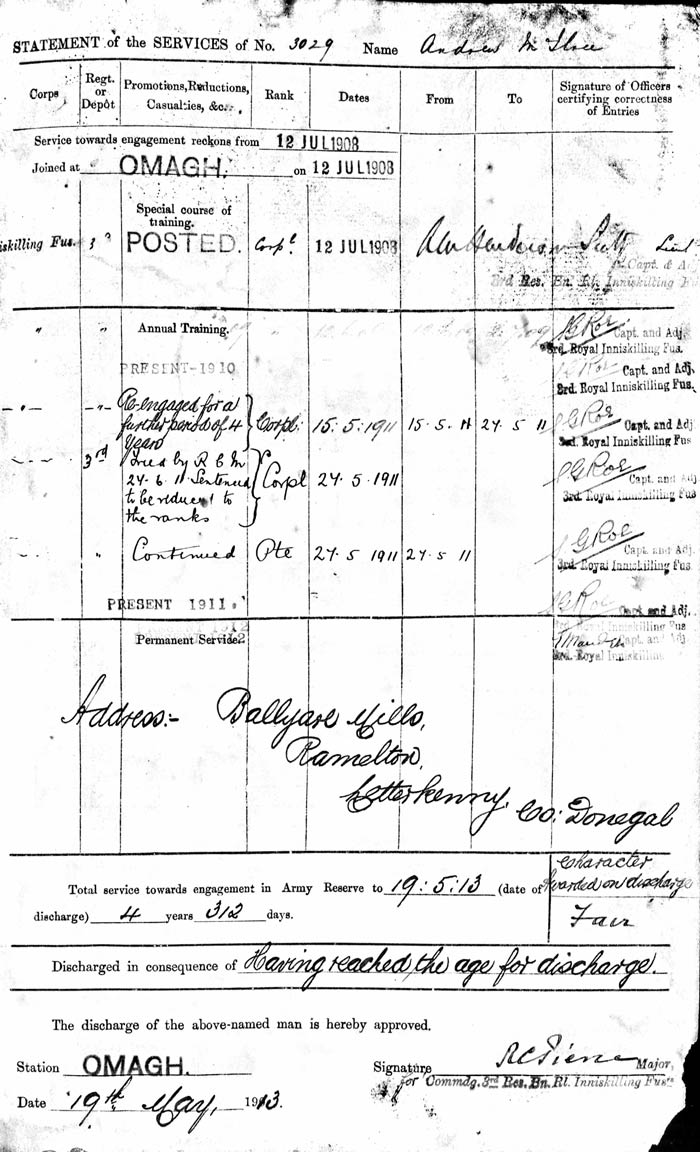 STATEMENT of the SERVICES of No. 3029 Name Andrew
Corps
Regt. or Depôt
Promotions, Reductions, Casualties, &c.
Rank
Dates
From
To
Signature of Officers certifying correctness of Entries
Service towards engagement reckons from 12 JUL 1908
Joined at OMAGH. on 12 JUL 1908
Special course of
training.
iskilling Fus. 3 POSTED. Corpl. 12 JUL 1908
Capt. & A
3rd Res. Bn. Rl. Inniskilling Fu
" " Annual Training. Capt. and Adj.
3rd. Royal Inniskilling Fus.
PRESENT-1910 Capt. and Adj.
3rd. Royal Inniskilling Fus.
-"- -"- Re-engaged for a
further period of 4 Corpl. 15.5.1911 15.5.11 24 5 11 J G Roe Capt. and Adj
Years 3rd. Royal Inniskilling Fus
3rd Tried by R C M Corpl 24.5.1911 J G Roe Capt. and Adj.
24.6.11 Sentenced 3rd. Royal Inniskilling Fus.
to be reduced to
the ranks
" Continued Pte 24.5 1911 24.5 11 J G Roe Capt. and Adj.
3rd. Royal Inniskilling Fus.
PRESENT 1911. Capt and Adj.
3rd Royal Inniskilling Fus
1912
Permanent Service. Capt and Adj
3rd. Royal Inniskilling
Address:- Ballyare Mills,
Ramelton,
Letterkenny, Co: Donegal
Character
awarded on discharge
Fair
Total service towards engagement in Army Reserve to 19:5:13 (date of
discharge) 4 years 312 days.
Discharged in consequence of Having reached the age for discharge.
The discharge of the above-named man is hereby approved.
Station OMAGH. Signature Major,
for Commdg. 3rd Res. Bn. Rl. Inniskilling Fus.
Date 19th May, 1913.